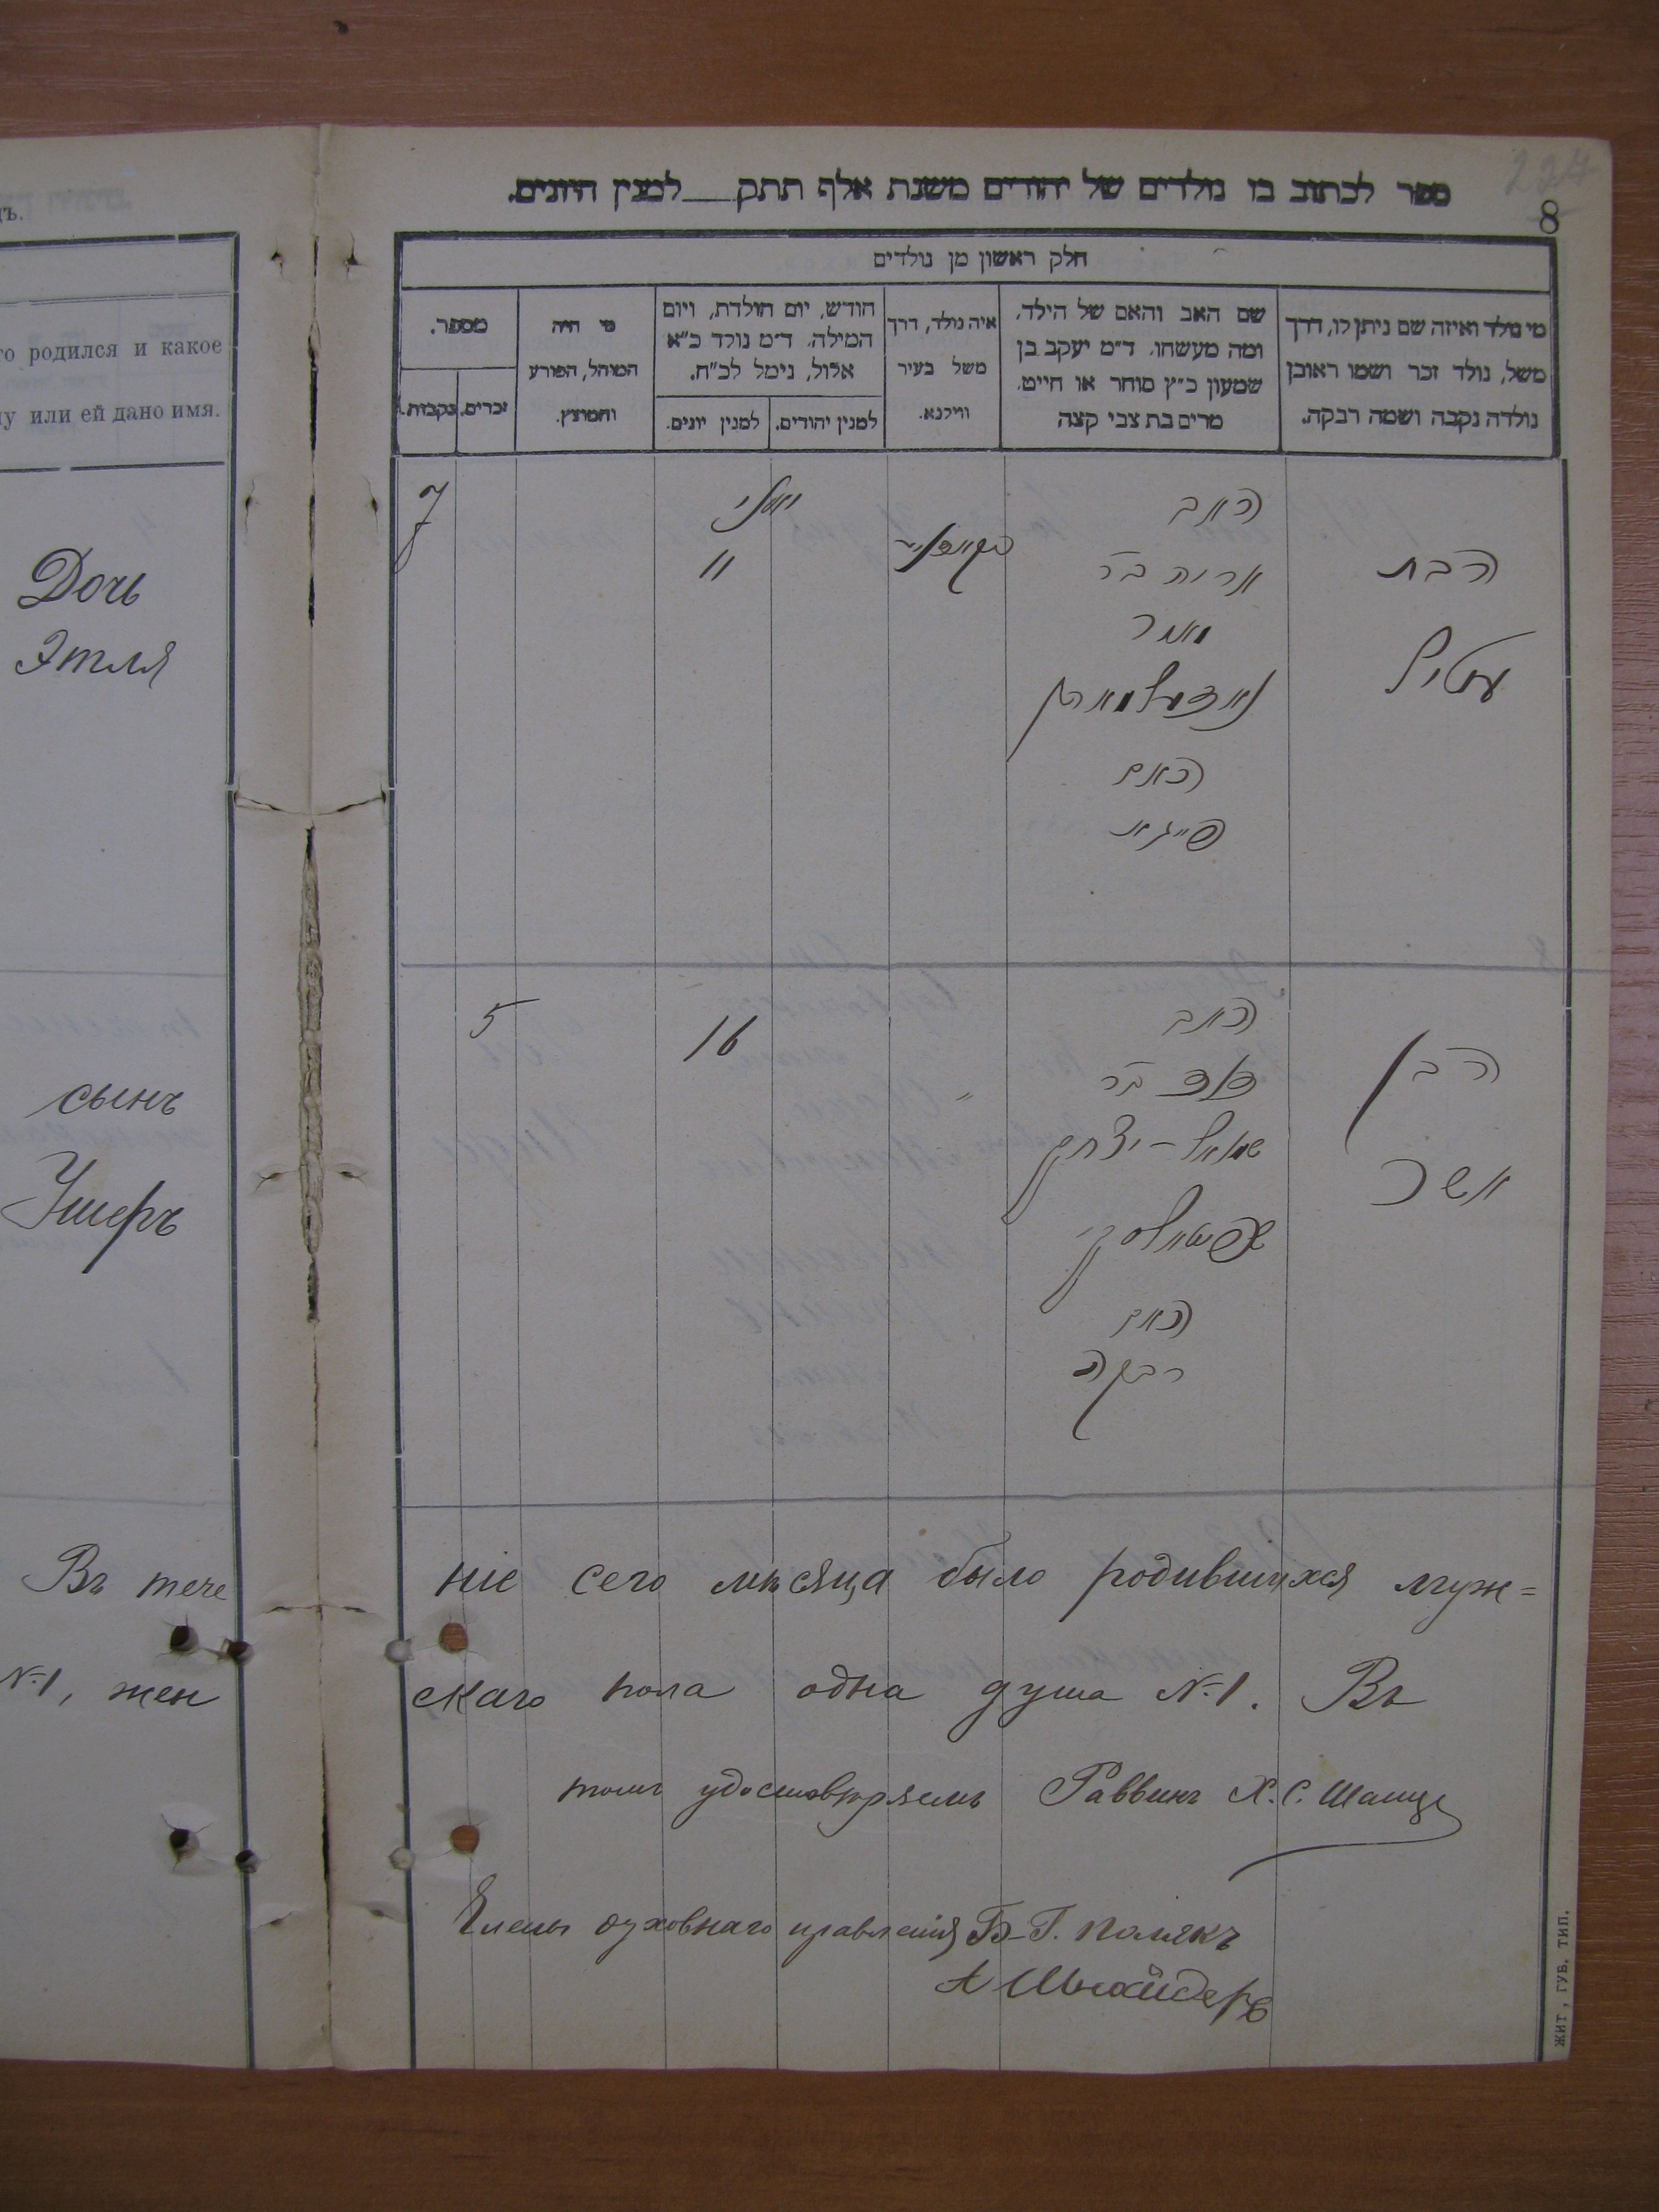 224
8
ספר לכתוב בו נולדים של יהודים משנת אלף תתק___למנין היונים.
חלק ראשון מן נולדים
מי נולד ואיזה שם ניתן לו, דרך
משל, נולד זכר ושמו ראובן
נולדה נקבה ושמה רבקה.
שם האב והאם של הילד,
ומה מעשהו. ד״מ יעקב בן
שמעון כ״ץ סוחר או חייט,
מרים בת צבי קצה
איה נולד, דרך
משל בעיר
ווילנא.
חודש, יום הולדת, ויום
המילה. ד״מ נולד כ״א
אלול, נימל לכ״ח.
למנין יהודים.
למנין יונים.
מי היה
המוהל, הפורע
והמוצץ.
מספר.
זכרים.
נקבות.
הבת
עטיל
האב
אריה בר
מאיר
האם
פייגא
יולי
11
7
הבן
אשר
האב
דוד בר
שמואל-יצחק
האם
רבקה
"
16
5
дъ.
го родился и какое
му или ей дано имя.
Дочь
Этля
сынъ
Ушеръ
Въ тече ніе сего мѣсяца было родившихся муж=
№1, жен скаго пола одна душа №1. Въ
томъ удостовѣряемъ Раввинъ Х.С. Шапиро
Члены духовнаго правленія Б-Г. Полякъ
А Шнайдеръ
ЖИТ, ГУБ. ТИП.